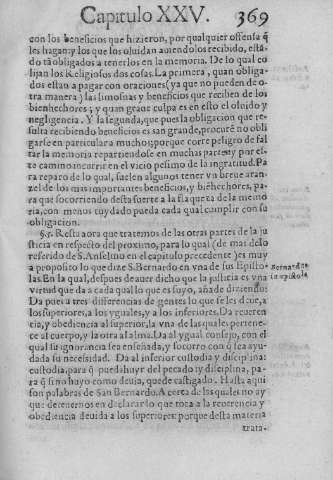 Capitulo XXV. 369
con los beneficios que hizieron, por qualquier offensa q̃
les hagan: y los que los oluidan auiendolos recibido, estã-
do tã obligados a tenerlos en la memoria. De lo qual co
lijan los Religiosos dos cosas. La primera, quan obliga-
dos estan a pagar con oraciones (ya que no pueden de o-
tra manera) las limosnas y beneficios que reciben de los
bienhechores; y quan graue culpa es en esto el oluido y
negligencia. Y la segunda, que pues la obligacion que re-
sulta recibiendo beneficios es tan grande, procurẽ no obli
garse en particular a muchos; porque corre peligro de fal
tar la memoria repartiendose en muchas partes: y por es-
te camino ncurrir en el vicio pesimo de la ingratitud. Pa
ra reparo de lo qual, suelen algunos tener vn breue aran-
zel de los mas importantes beneficios, y biẽhechores, pa-
ra que socorriendo desta suerte a la flaqueza de la memo
ria, con menos cuydado pueda cada qual cumplir con su
obligacion.
§.5. Resta aora que tratemos de las otras partes de la ju
sticia en respecto del proximo, para lo qual (de mas de lo
referido de S. Anselmo en el capitulo precedente) es muy
a proposito lo que dize S. Bernardo en vna de sus Episto
las. En la qual, despues de auer dicho que la justicia es vna
virtud que da a cada qual lo que es suyo, añade diziendo:
Da pues a tres differencias de gentes lo que se les deue, a
los superiores, a los yguales, y a los inferiores. Da reueren
cia, y obediencia al superior, la vna de las quales pertene-
ce al cuerpo, y la otra al alma. Da al ygual consejo, con el
qual su ignorancia sea enseñada, y socorro con q̃ sea ayu-
dada su necesidad. Da al inferior custodia y disciplina:
custodia, para q̃ pueda huyr del pecado y disciplina, pa-
ra q̃ si no huyo como deuia, quede castigado. Hasta aqui
son palabras de San Bernardo. Acerca de las quales no ay
que detenernos en declarar lo que toca a la reuerencia y
obediencia deuida a los superiores: porque desta materia
trata-
Bernardus
in epistola